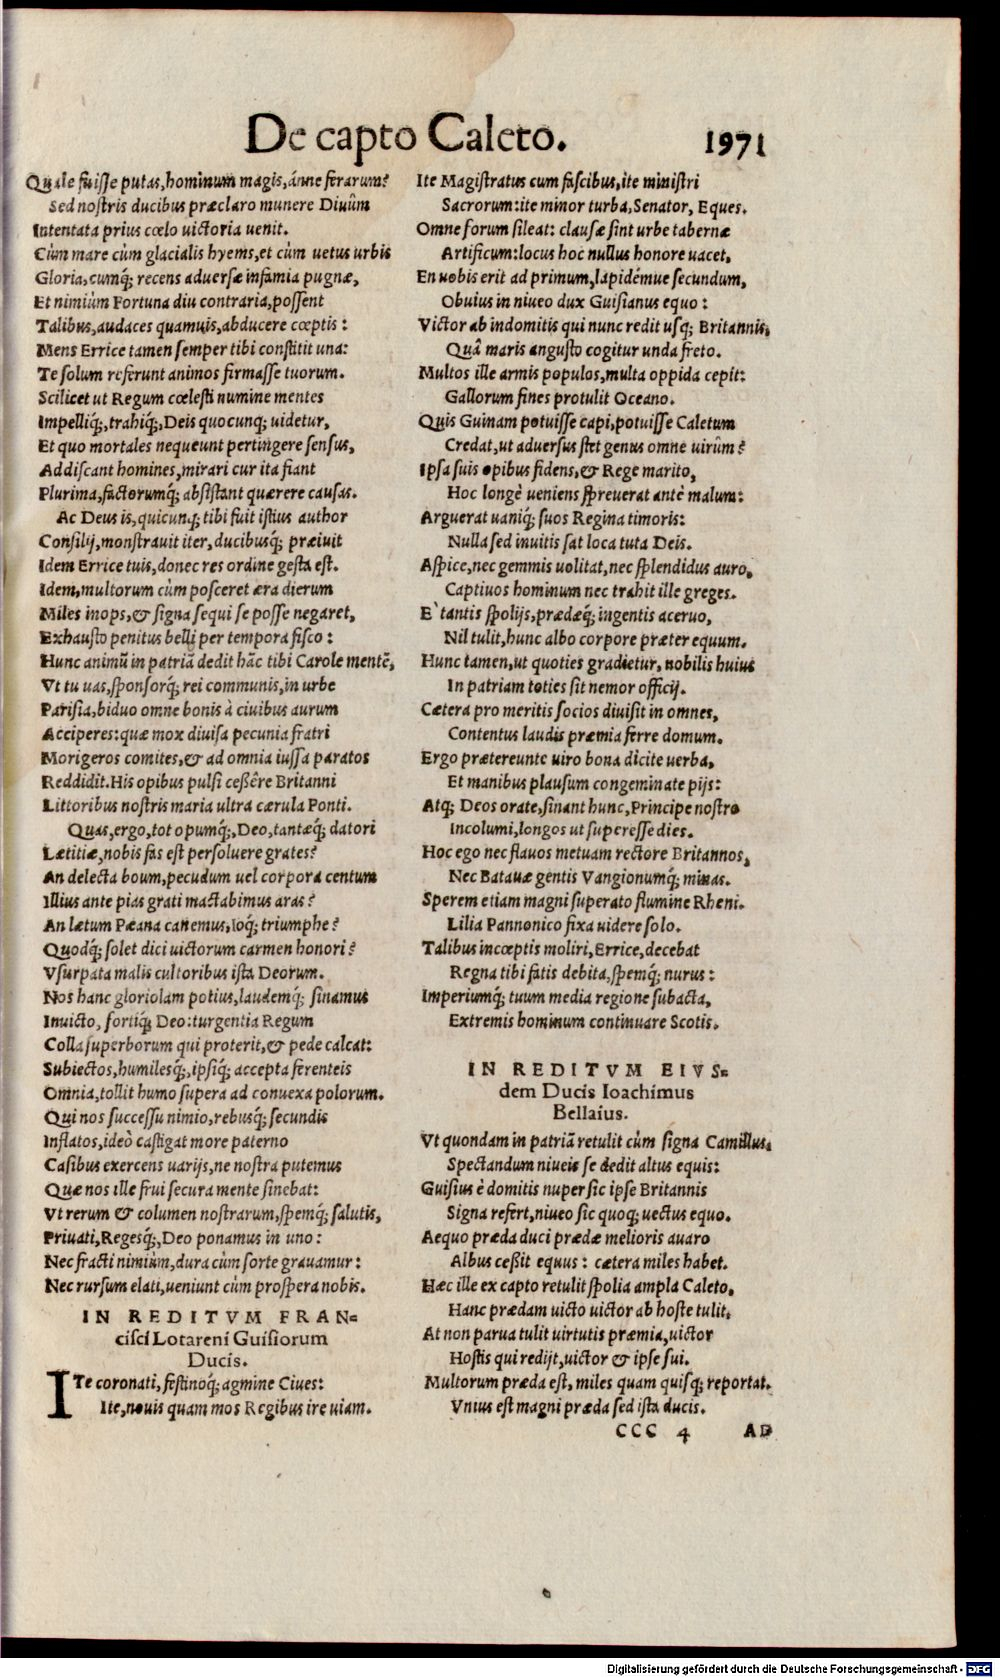 De capto Caleto. 1971
Quale fuisse putas, hominum magis, ánne ferarum?
Sed nostris ducibus præclaro munere Diuûm
Intentata prius cœlo uictoria uenit.
Cùm mare cùm glacialis hyems, et cùm uetus urbis
Gloria, cumq́; recens aduersæ infamia pugnæ,
Et nimiùm Fortuna diu contraria, possent
Talibus, audaces quamuis, abducere cœptis:
Mens Errice tamen semper tibi constitit una:
Te solum referunt animos firmasse tuorum.
Scilicet ut Regum cœlesti numine mentes
Impelliq́;, trahiq́;, Deis quocunq; uidetur,
Et quo mortales nequeunt pertingere sensus,
Addiscant homines, mirari cur ita fiant
Plurima, factorumq́; absistant quærere causas.
Ac Deus is, quicunq; tibi fuit istius author
Consilij, monstrauit iter, ducibusq́; præiuit
Idem Errice tuis, donec res ordine gesta est.
Idem, multorum cùm posceret æra dierum
Miles inops, & signa sequi se posse negaret,
Exhausto penitus belli per tempora fisco:
Hunc animũ in patriã dedit hãc tibi Carole mentẽ,
Vt tu uas, sponsorq́; rei communis, in urbe
Parisia, biduo omne bonis à ciuibus aurum
Acciperes: quæ mox diuisa pecunia fratri
Morigeros comites, & ad omnia iussa paratos
Reddidit. His opibus pulsi ceßêre Britanni
Littoribus nostris maria ultra cærula Ponti.
Quas, ergo, tot opumq́;, Deo, tantæq́; datori
Lætitiæ, nobis fas est persoluere grates?
An delecta boum, pecudum uel corpora centum
Illius ante pias grati mactabimus aras?
An lætum Pæana canemus, Ioq́; triumphe?
Quodq́; solet dici uictorum carmen honori?
Vsurpata malis cultoribus ista Deorum.
Nos hanc gloriolam potius, laudemq́; sinamus
Inuicto, fortiq́; Deo: turgentia Regum
Colla superborum qui proterit, & pede calcat:
Subiectos, humilesq́;, ipsiq́; accepta ferenteis
Omnia, tollit humo supera ad conuexa polorum.
Qui nos successu nimio, rebusq́; secundis
Inflatos, ideò castigat more paterno
Casibus exercens uarijs, ne nostra putemus
Quæ nos ille frui secura mente sinebat:
Vt rerum & columen nostrarum, spemq́; salutis,
Priuati, Regesq́;, Deo ponamus in uno:
Nec fracti nimiùm, dura cùm sorte grauamur:
Nec rursum elati, ueniunt cùm prospera nobis.
IN REDITVM FRAN=
cisci Lotareni Guisiorum
Ducis.
ITe coronati, festinoq́; agmine Ciues:
Ite, nouis quam mos Regibus ire uiam.
Ite Magistratus cum fascibus, ite ministri
Sacrorum: ite minor turba, Senator, Eques.
Omne forum sileat: clausæ sint urbe tabernæ
Artificum: locus hoc nullus honore uacet,
En uobis erit ad primum, lapidémue secundum,
Obuius in niueo dux Guisianus equo:
Victor ab indomitis qui nunc redit usq; Britannis,
Quâ maris angusto cogitur unda freto.
Multos ille armis populos, multa oppida cepit:
Gallorum fines protulit Oceano.
Quis Guinam potuisse capi, potuisse Caletum
Credat, ut aduersus stet genus omne uirûm?
Ipsa suis opibus fidens, & Rege marito,
Hoc longè ueniens spreuerat antè malum:
Arguerat uaniq́; suos Regina timoris:
Nulla sed inuitis sat loca tuta Deis.
Aspice, nec gemmis uolitat, nec splendidus auro,
Captiuos hominum nec trahit ille greges.
E` tantis spolijs, prædæq́; ingentis aceruo,
Nil tulit, hunc albo corpore præter equum.
Hunc tamen, ut quoties gradietur, nobilis huius
In patriam toties sit nemor officij.
Cætera pro meritis socios diuisit in omnes,
Contentus laudis præmia ferre domum.
Ergo prætereunte uiro bona dicite uerba,
Et manibus plausum congeminate pijs:
Atq; Deos orate, sinant hunc, Principe nostro
Incolumi, longos ut superesse dies.
Hoc ego nec flauos metuam rectore Britannos,
Nec Batauæ gentis Vangionumq́; minas.
Sperem etiam magni superato flumine Rheni.
Lilia Pannonico fixa uidere solo.
Talibus incœptis moliri, Errice, decebat
Regna tibi fatis debita, spemq́; nurus:
Imperiumq́; tuum media regione subacta,
Extremis hominum continuare Scotis.
IN REDITVM EIVS=
dem Ducis Ioachimus
Bellaius.
Vt quondam in patriã retulit cùm signa Camillus,
Spectandum niueis se dedit altus equis:
Guisius è domitis nuper sic ipse Britannis
Signa refert, niueo sic quoq; uectus equo.
Aequo præda duci prædæ melioris auaro
Albus ceßit equus: cætera miles habet.
Hæc ille ex capto retulit spolia ampla Caleto,
Hanc prædam uicto uictor ab hoste tulit.
At non parua tulit uirtutis præmia, uictor
Hostis qui redijt, uictor & ipse sui.
Multorum præda est, miles quam quisq; reportat.
Vnius est magni præda sed ista ducis.
CCC 4 AD
Digitalisierung gefördert durch die Deutsche Forschungsgemeinschaft - DFG